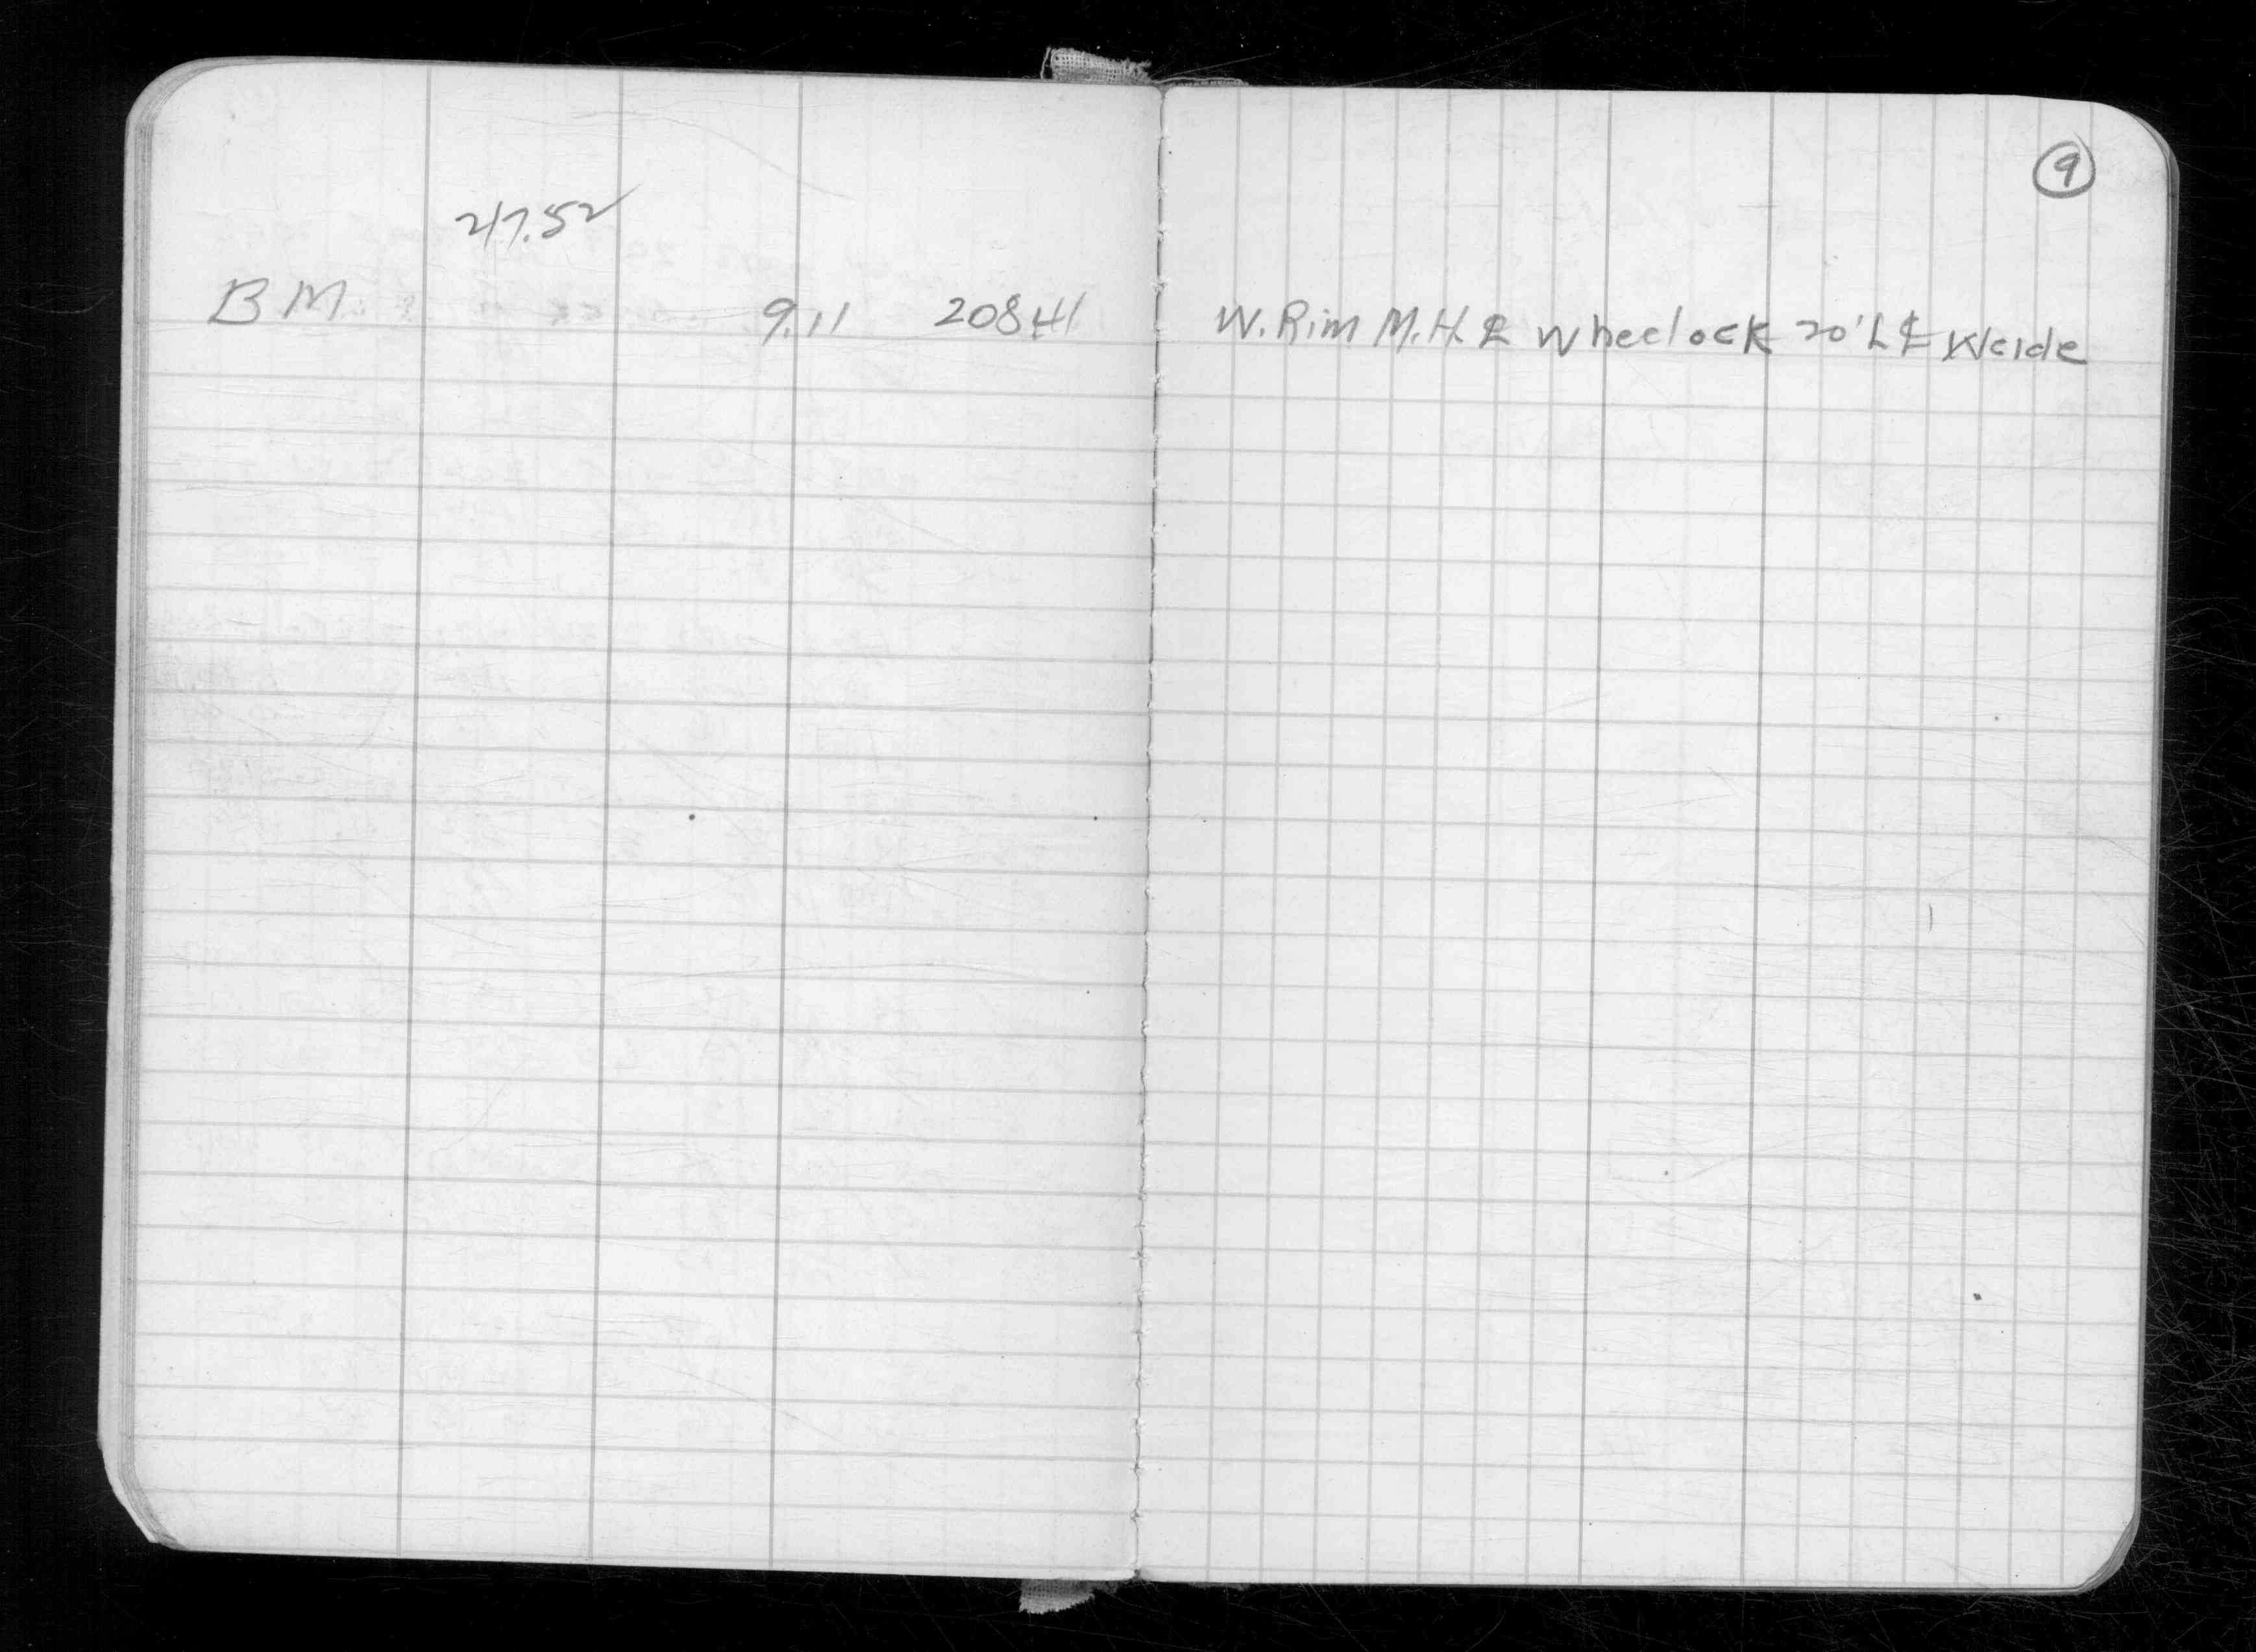 9
217.52
BM 9.11 208 41 W. Rim M.H. ℄ Wheelock 20' L ℄ Weide